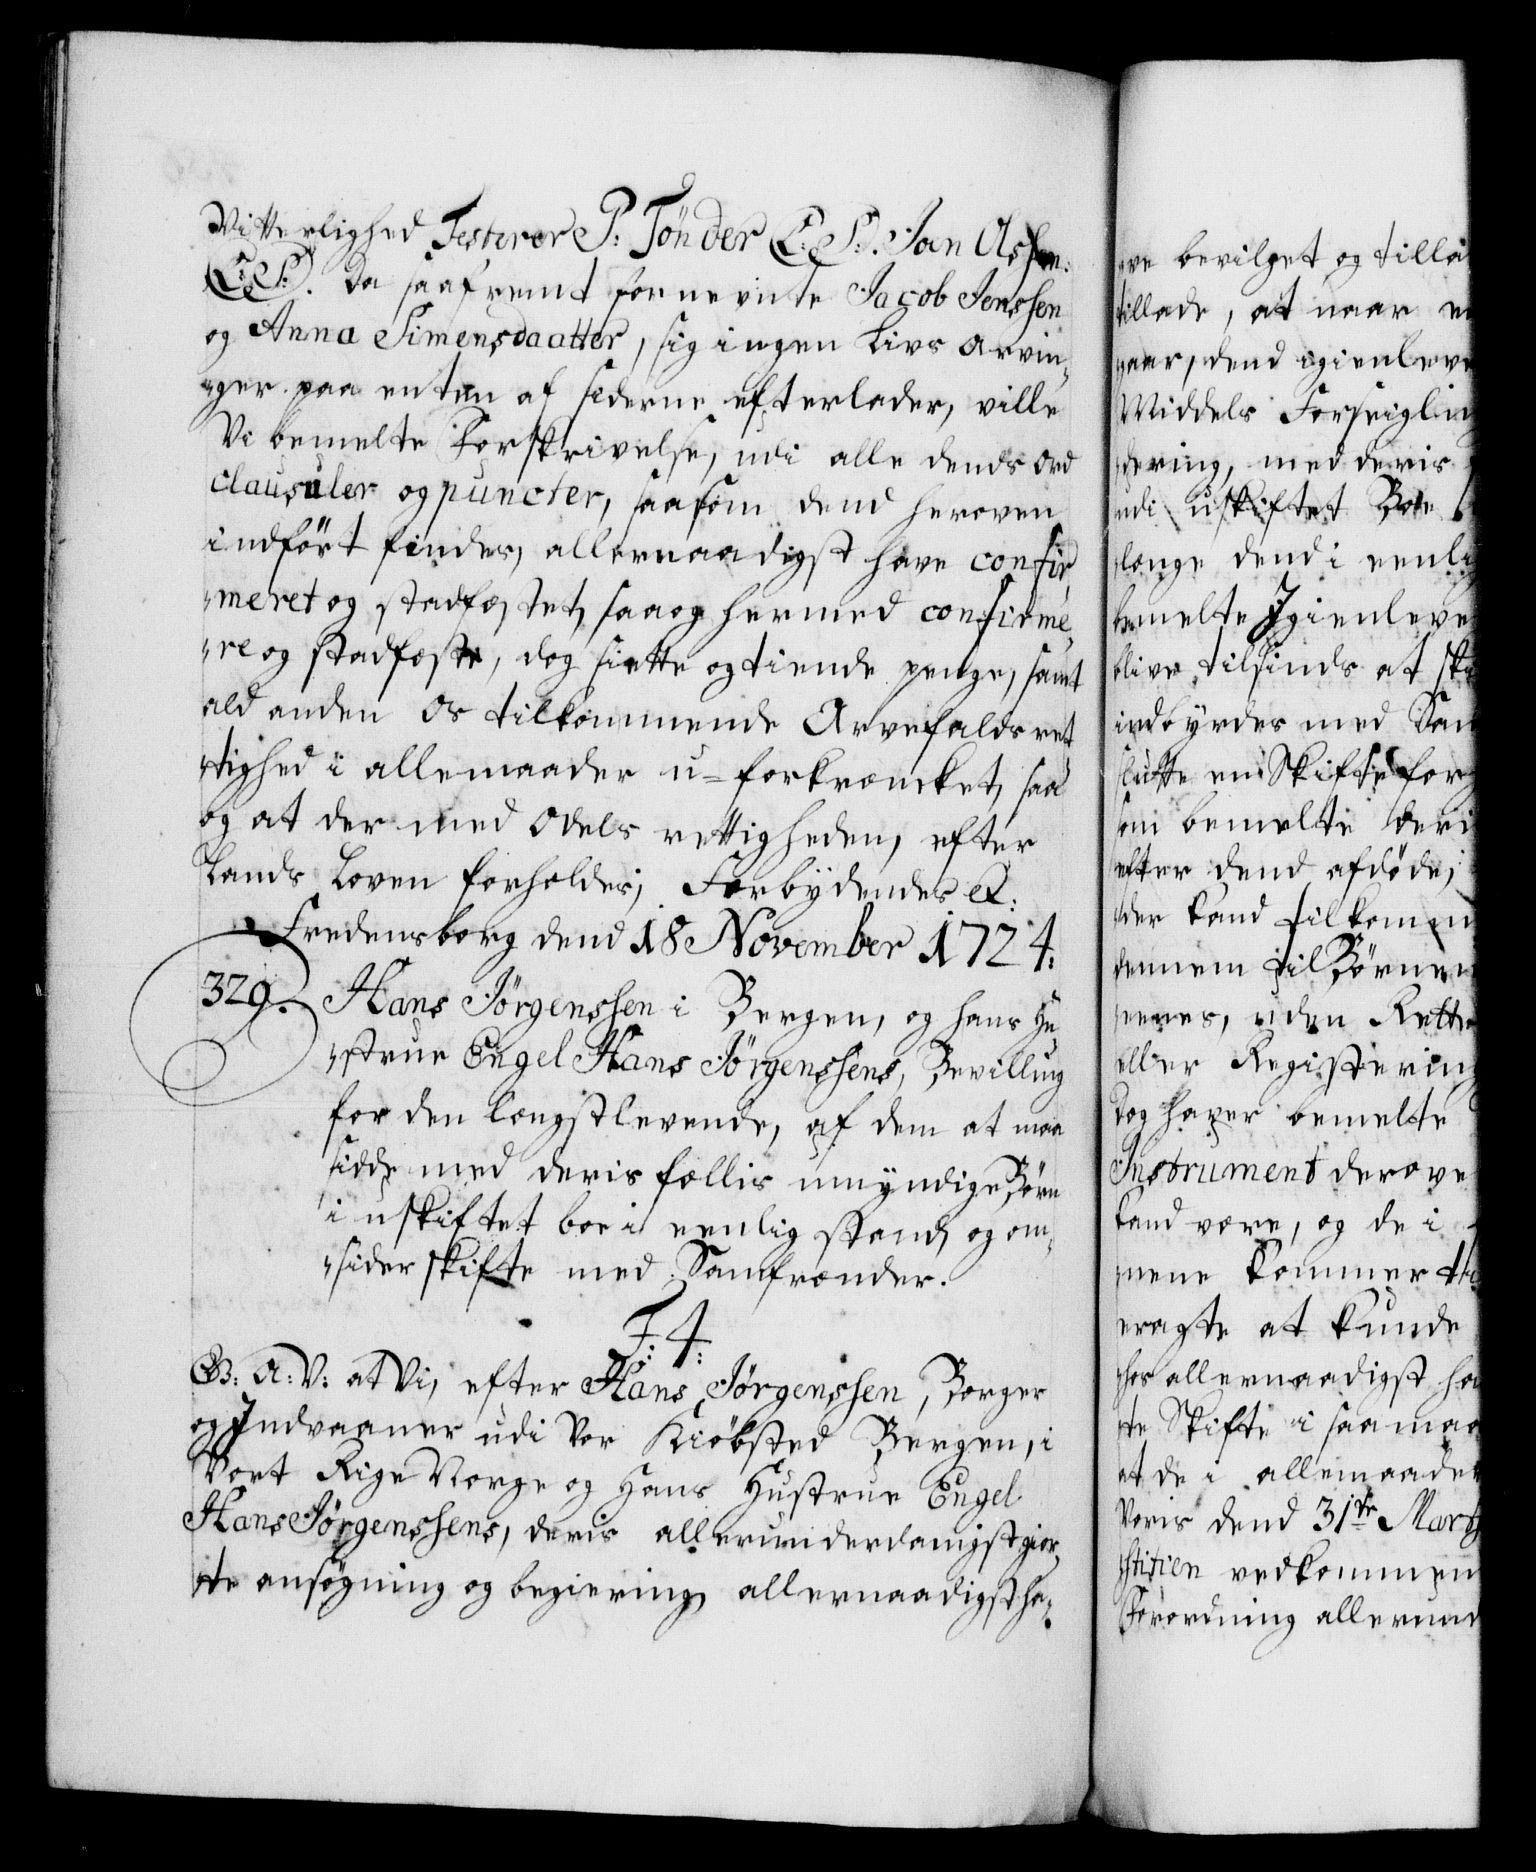 Vitterlighed Testerer P: Tönder (L. S:). Jan Olssen:
(L: S:). Da saafremt fornevnte Jacob Jenssen
og Anna Simensdaatter, sig ingen Livs Arvin-
ger paa enten af siderne efterlader, ville
Vi bemelte Forskrivelse, udi alle dends ord
clausuler og puncter, saasom dend heroven
indfört findes, allernaadigst have confir
meret og stadfæstet, saa og hermed confirme-
re og stadfæste, dog siette og tiende penge, samt
ald anden Os tilkommende Arvefalds ret
tighed i allemaader u-forkræncket, saa
og at der med Odels rettigheden, efter
Lands Loven forholdes; Forbydendes &:
Fredensborg dend 18 November 1724:
329. Hans Jörgenssen i Bergen, og hans Hu
strue Engel Hans Jörgenssens, Bevilling
for den længstlevende, af dem at maa
sidde med deris fællis umyndige Börn
i uskiftet boe i eenlig stand, og om-
sider skifte med Samfrænder.
F: 4:
G: A: V: at Vi, efter Hans Jörgenssen, Borger
og Indvaaner udi Vor Kiöbsted Bergen, i
Vort Rige Norge og Hans Hustrue Engel
Hans Jörgenssens, deris allerunderdanigst gior-
te ansøgning og begiering, allernaadigst ha-
ve bevilget og tilla
tillade, at naar e
gaar, dend igienleve
Middels Forseigling
dering, med deris
udi uskiftet Boe
længe dend i eenli
bemelte Igienleve
blive tilsinds at ski
indbyrdes med Sam
slutte en Skifte for
som bemelte deri
efter dend afdöde,
der kand tilkomm
dennem til Börnen
nenes, uden Rette
eller Registering
Dog haver bemelte
Instrument derove
kand være, og de i
nene kommer til
eragte at kunde
hos allernaadigst ha
te Skifte i saa maa
at de i allemaader
Voris dend 31te Marty
Stitien vedkommen
Forordning allerund